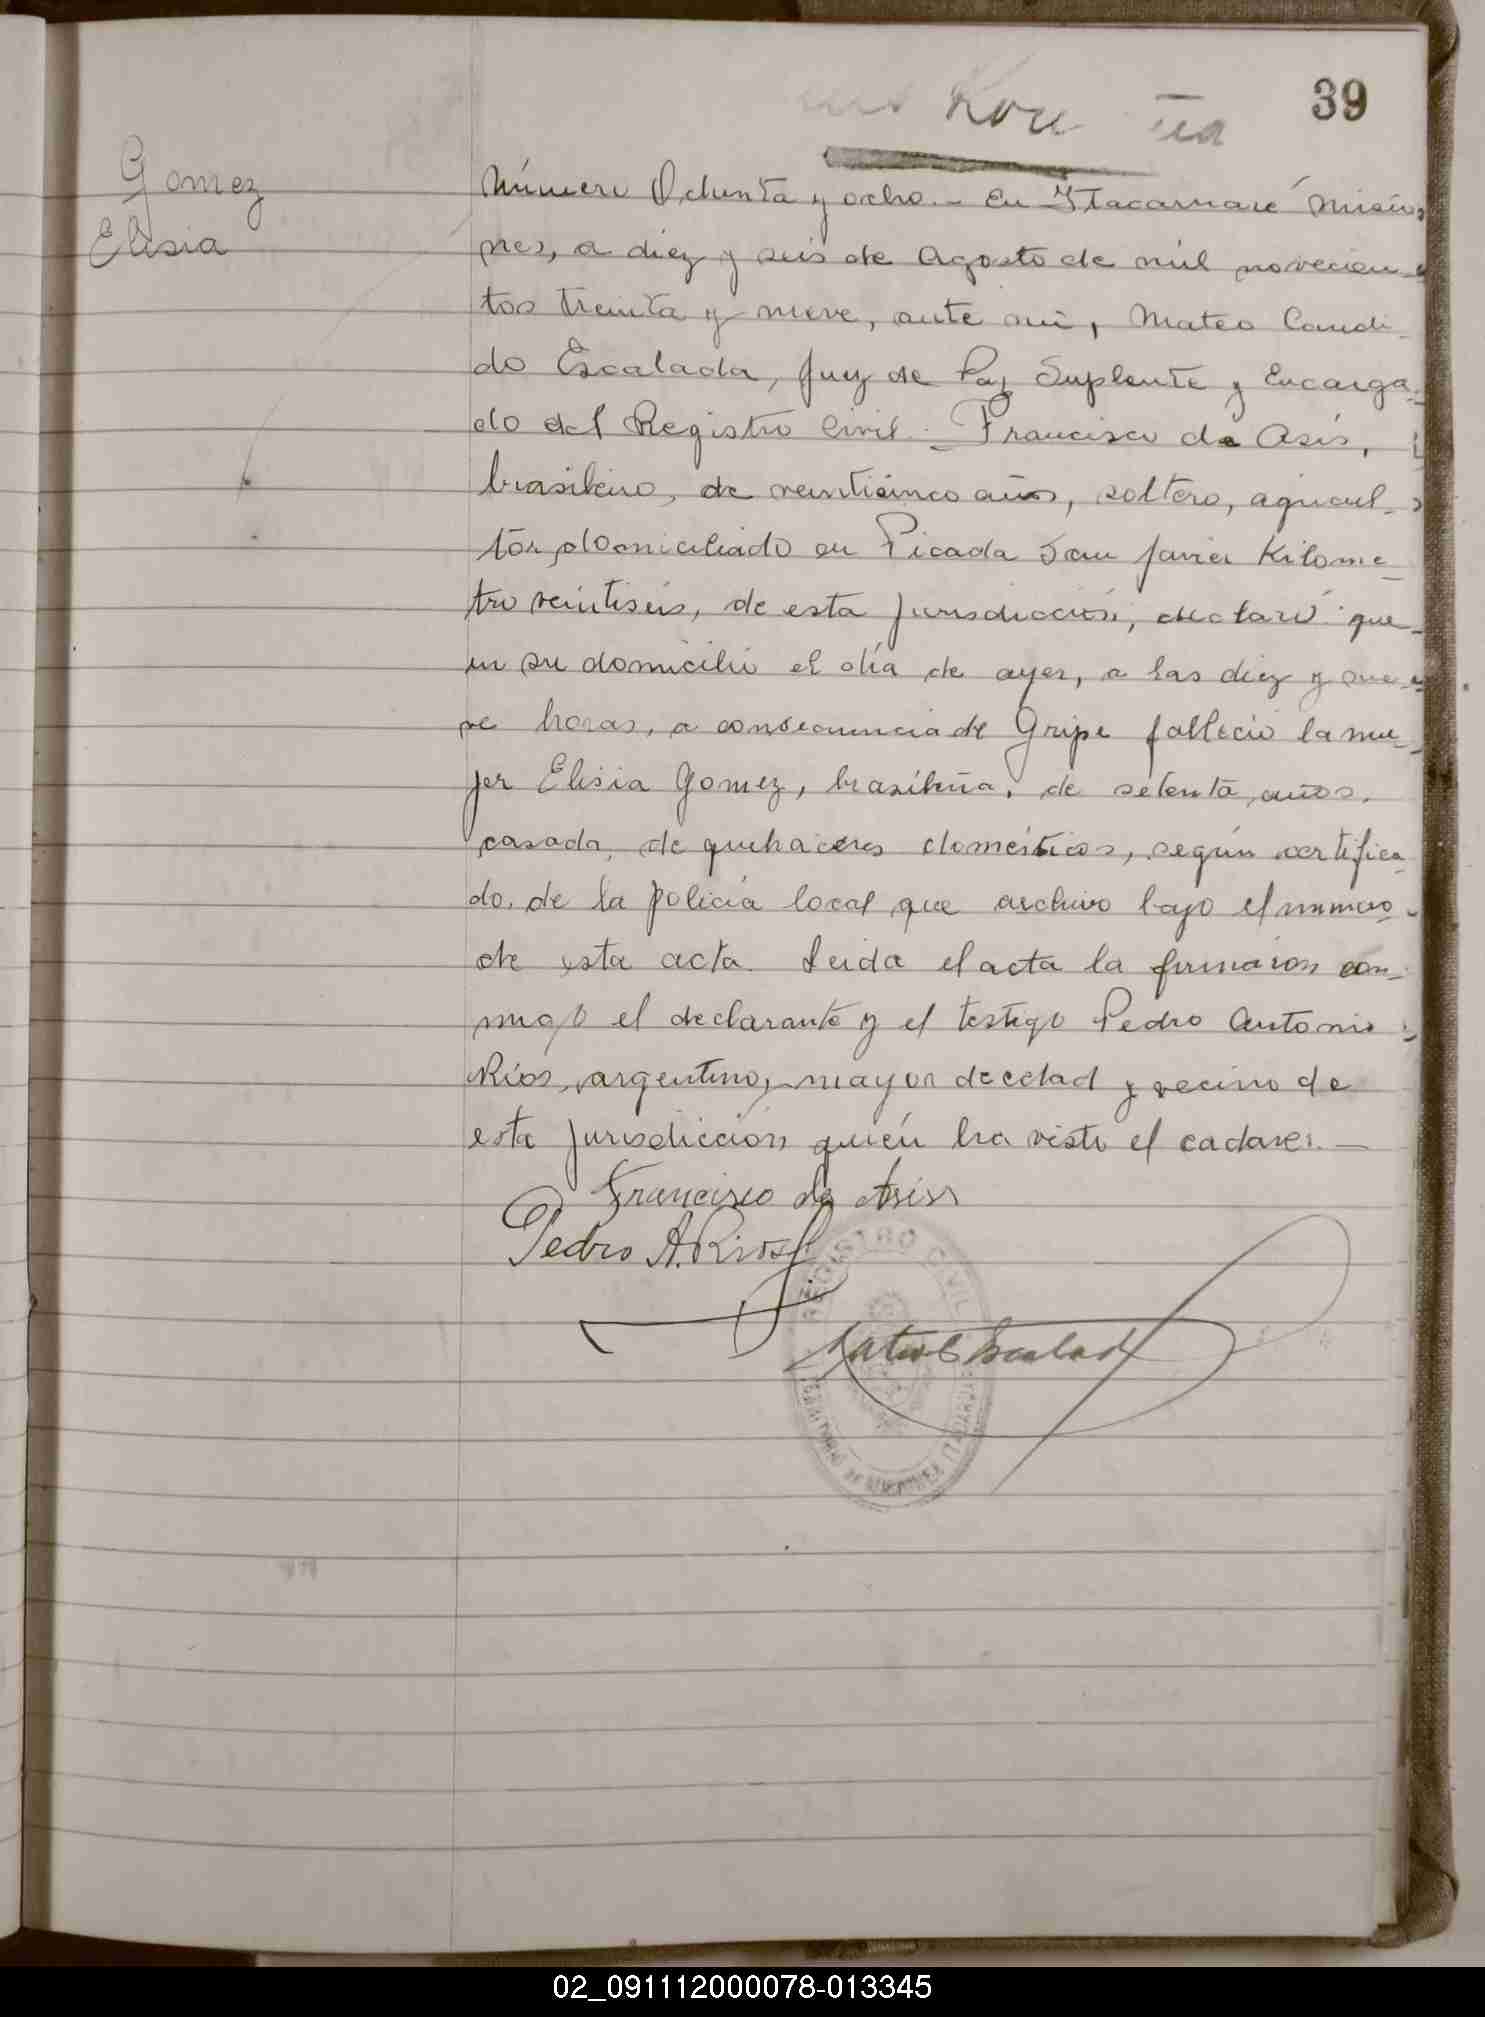 39
Gomez
Elisia
Número Ochenta y ocho.- En Itacaruaré Misio-
nes, a diez y seis de Agosto de mil novecien-
tos treinta y nueve, ante mi, Mateo Candi-
do Escalada, Juez de Paz Suplente y Encarga-
do del Registro Civil. Francisco de Asis,
brasilero, de veinticinco años, soltero, agricul-
tor, domiciliado en Picada San Javier Kilome-
tro veintiseis, de esta jurisdicción, declaró: que
en su domicilio el día de ayer, a las diez y nue-
ve horas, a consecuencia de Gripe falleció la mu-
jer Elisia Gomez, brasileña, de setenta años,
casada, de quehaceres domésticos, según certifica-
do de la policía local que archivo bajo el numero
de esta acta. Leida el acta la firmaron con-
migo el declarante y el testigo Pedro Antonio
Ríos, argentino, mayor de edad y vecino de
esta jurisdicción quién ha visto el cadaver.-
Francisco de Asis
Pedro A. Rios
Mateo C Escalada
REGISTRO CIVIL
TERRITORIO DE MISIONES ITACARUARE
02_091112000078-013345